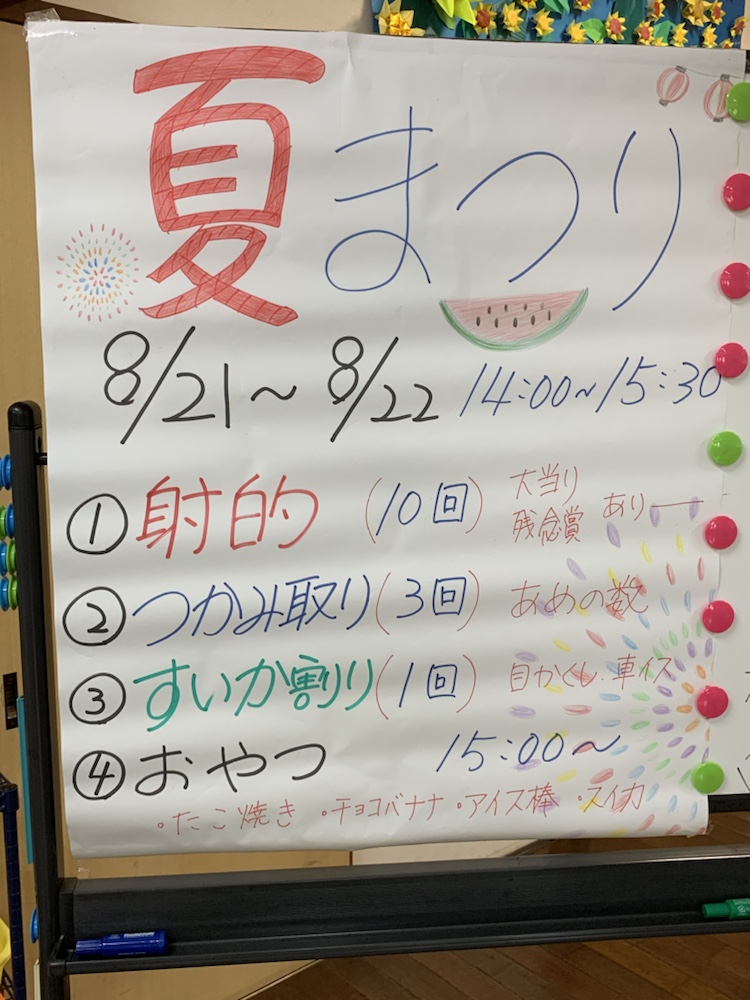 夏まつり
8/21〜8/22 14:00〜15:30
①射的 (10回) 大当り 残念賞 あり
②つかみ取り(3回) あめの数
③すいか割り(1回)目かくし・車イス
④おやつ 15:00〜
・たこ焼き ・チョコバナナ ・アイス棒 ・スイカ